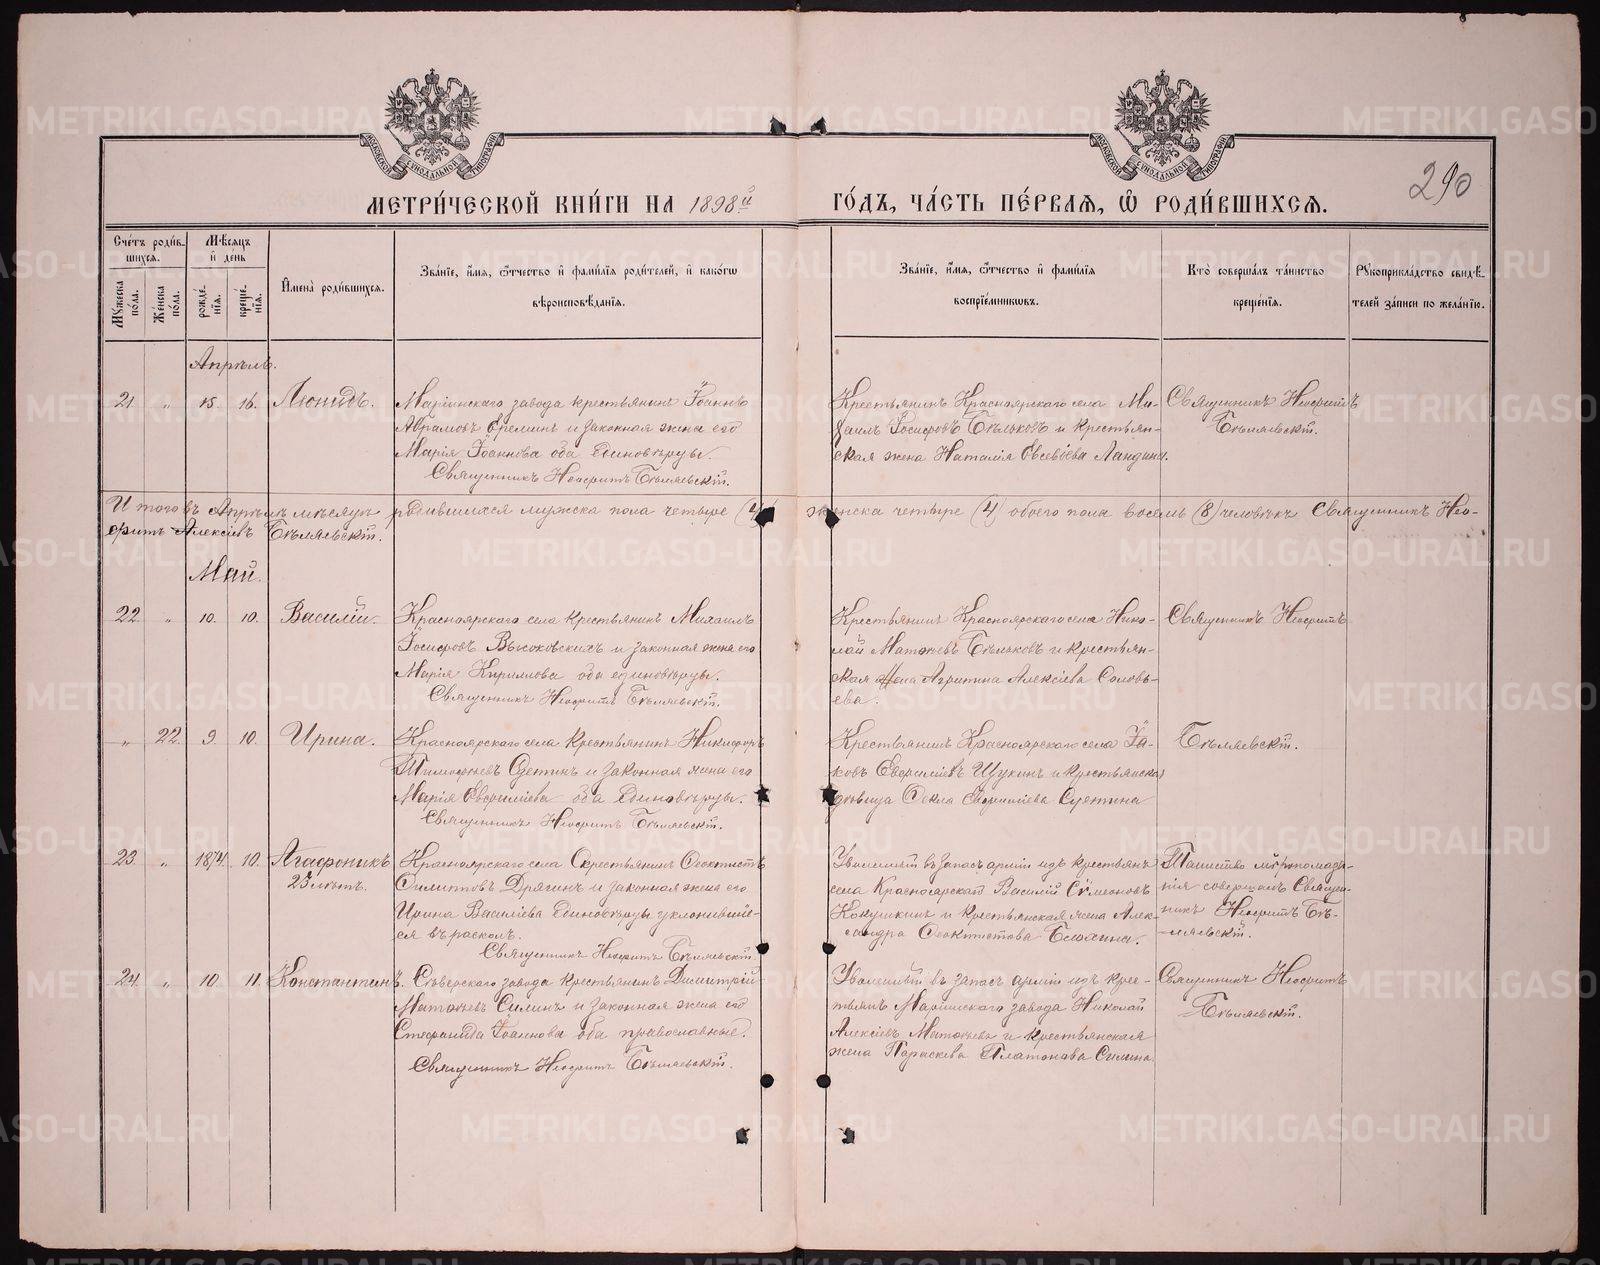 МЕТРИ́ЧЕСКОЙ КНИ́ГИ НА 1898й ГО́ДЪ, ЧА́СТЬ ПЕ́РВАЯ, Ѽ РОДИ́ВШИХСЯ.
290
Сче́тъ роди́вшихся.
Му́жеска по́ла.
Же́нска по́ла.
Мѣ́сяцъ и де́нь
рожде́нія.
креще́нія.
Имена̀ роди́вшихся.
Зва́ніе, и́мя, ѻ́тчество и фами́лія роди́телей, и како́гѡ
вѣроисповѣ́данія.
Зва́ніе, и́мя, ѻ́тчество и фами́лія
воспріе́мниковъ.
Кто̀ соверша́лъ та́инство
креще́нія.
Рꙋкоприкла́дство свидѣ́-
телей за́писи по жела́нію.
Апрѣль.
21 " 15. 16. Леонидъ.
Маріинскаго завода крестьянинъ Іоаннъ
Аврамовъ Ереминъ и законная жена его
Марія Іоаннова оба единовѣрцы.
Священникъ Неофитъ Бѣляевскій.
Крестьянинъ Красноярскаго села Ми-
хаилъ Іосифовъ Бѣльковъ и крестьян-
ская жена Наталія Евсевіева Ландина.
Священникъ Неофитъ
Бѣляевскій.
Итого въ Апрѣлѣ мѣсяцѣ родившихся мужска пола четыре (4) женска четыре (4) обоего пола восемь (8) человѣкъ Священникъ Нео-
фитъ Алексіевъ Бѣляевскій.
Май.
22 " 10. 10. Василій.
Красноярскаго села крестьянинъ Михаилъ
Іосифовъ Высоковскихъ и законная жена его
Марія Кирилова оба единовѣрцы.
Священникъ Неофитъ Бѣляевскій.
Крестьянинъ Красноярскаго села Нико-
лай Матѳіевъ Бѣльковъ и крестьян-
ская жена Агрипина Алексіева Соловь-
ева.
Священникъ Неофитъ
" 22 9. 10. Ирина.
Красноярскаго села крестьянинъ Никифоръ
Тимоѳеевъ Сѫетинъ и законная жена его
Марія Евфиміева оба единовѣрцы.
Священникъ Неофитъ Бѣляевскій.
Крестьянинъ Красноярскаго села Іа-
ковъ Евфиміевъ Щукинъ и крестьянская
дѣвица Ѳекла Суетина
Бѣляевскій.
23 " 1874. 10. Агафоникъ
23 лѣтъ.
Красноярскаго села крестьянинъ Ѳеоктистъ
Дрягинъ и законная жена его
Ирина Василіева единовѣрцы уклонившіе-
ся въ расколъ.
Священникъ Неофитъ Бѣляевскій.
Уволенный въ запасъ арміи изъ крестьянъ
села Красноярскаго Василій Сѷмеоновъ
Кокушкинъ и крестьянская жена Алек-
сандра Ѳеоктистова Блохина.
Таинство мѵропомаза-
нія совершалъ Священ-
никъ Неофитъ Бѣ-
ляевскій.
24 " 10 11. Константинъ.
Сѣверскаго завода крестьянинъ Димитрій
Матѳіевъ Силинъ и законная жена его
Стефанида Іоаннова оба православные.
Священникъ Неофитъ Бѣляевскій.
Уволенный въ запасъ арміи изъ крес-
тьянъ Маріинскаго завода Николай
Алексіевъ Матѳіевъ и крестьянская
жена Параскева Платонова Силина
Священникъ Неофитъ
Бѣляевскій.
METRIKI.GASO-URAL.RU